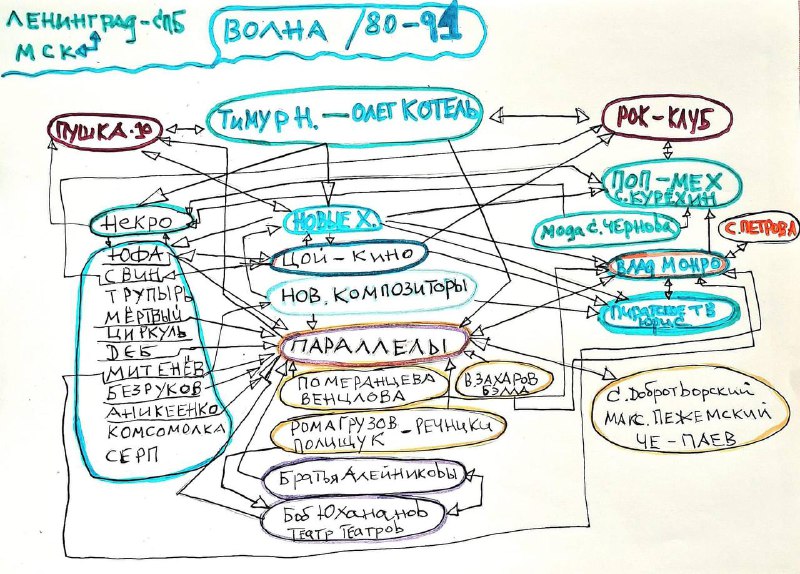 ЛЕНИНГРАД-СПБ
МСК
ВОЛНА /80-91
ТИМУР Н. — ОЛЕГ КОТЕЛЬ
ПУШКА-10
РОК-КЛУБ
ПОП-МЕХ
С. КУРЁХИН
НЕКРО
НОВЫЕ Х.
МОДА С. ЧЕРНОВА
С. ПЕТРОВА
ЮФА
СВИН
ТРУПЫРЬ
МЁРТВЫЙ
ЦИРКУЛЬ
DЕБ
МИТЕНЁВ
БЕЗРУКОВ
АНИКЕЕНКО
КОМСОМОЛКА
СЕРП
ЦОЙ-КИНО
ВЛАД МОНРО
НОВ. КОМПОЗИТОРЫ
ПИРАТСКОЕ ТВ
ЮРИС.
ПАРАЛЛЕЛЫ
ПОМЕРАНЦЕВА
ВЕНЦЛОВА
В ЗАХАРОВ
БЭЛЛА
С. ДОБРОТВОРСКИЙ
МАКС. ПЕЖЕМСКИЙ
ЧЕ-ПАЕВ
РОМА ГРУЗОВ-РЕЧНИКИ
ПОЛИЩУК
БРАТЬЯ АЛЕЙНИКОВЫ
БОБ ЮХАНАНОВ
ТЕАТР ТЕАТРОВ